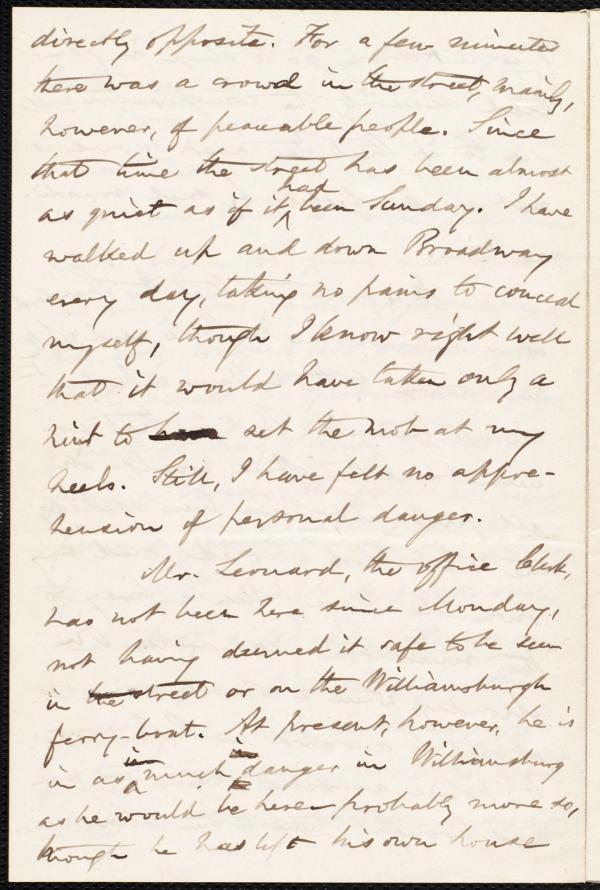 directly opposite. For a few minutes
there was a crowd in the street, mainly,
however, of peaceable people. Since
that time the street has been almost
as quiet as if it had been Sunday. I have
walked up and down Broadway
every day, taking no pains to conceal
myself, though I know right well
that it would have taken only a
hint to set the mob at my
heels. Still, I have felt no appre-
hension of personal danger.
Mr. Leonard, the office Clerk,
has not been here since Monday,
not having deemed it safe to be seen
in the street or on the Williamsburgh
ferry-boat. At present, however, he is
in as much danger in Williamsburg
as he would be here - probably more so,
though he has left his own house